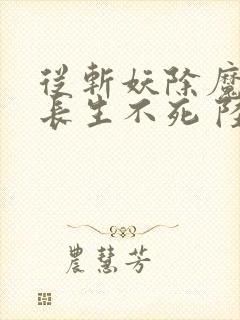 從斬妖除魔
長生不死 陸
農慧芳